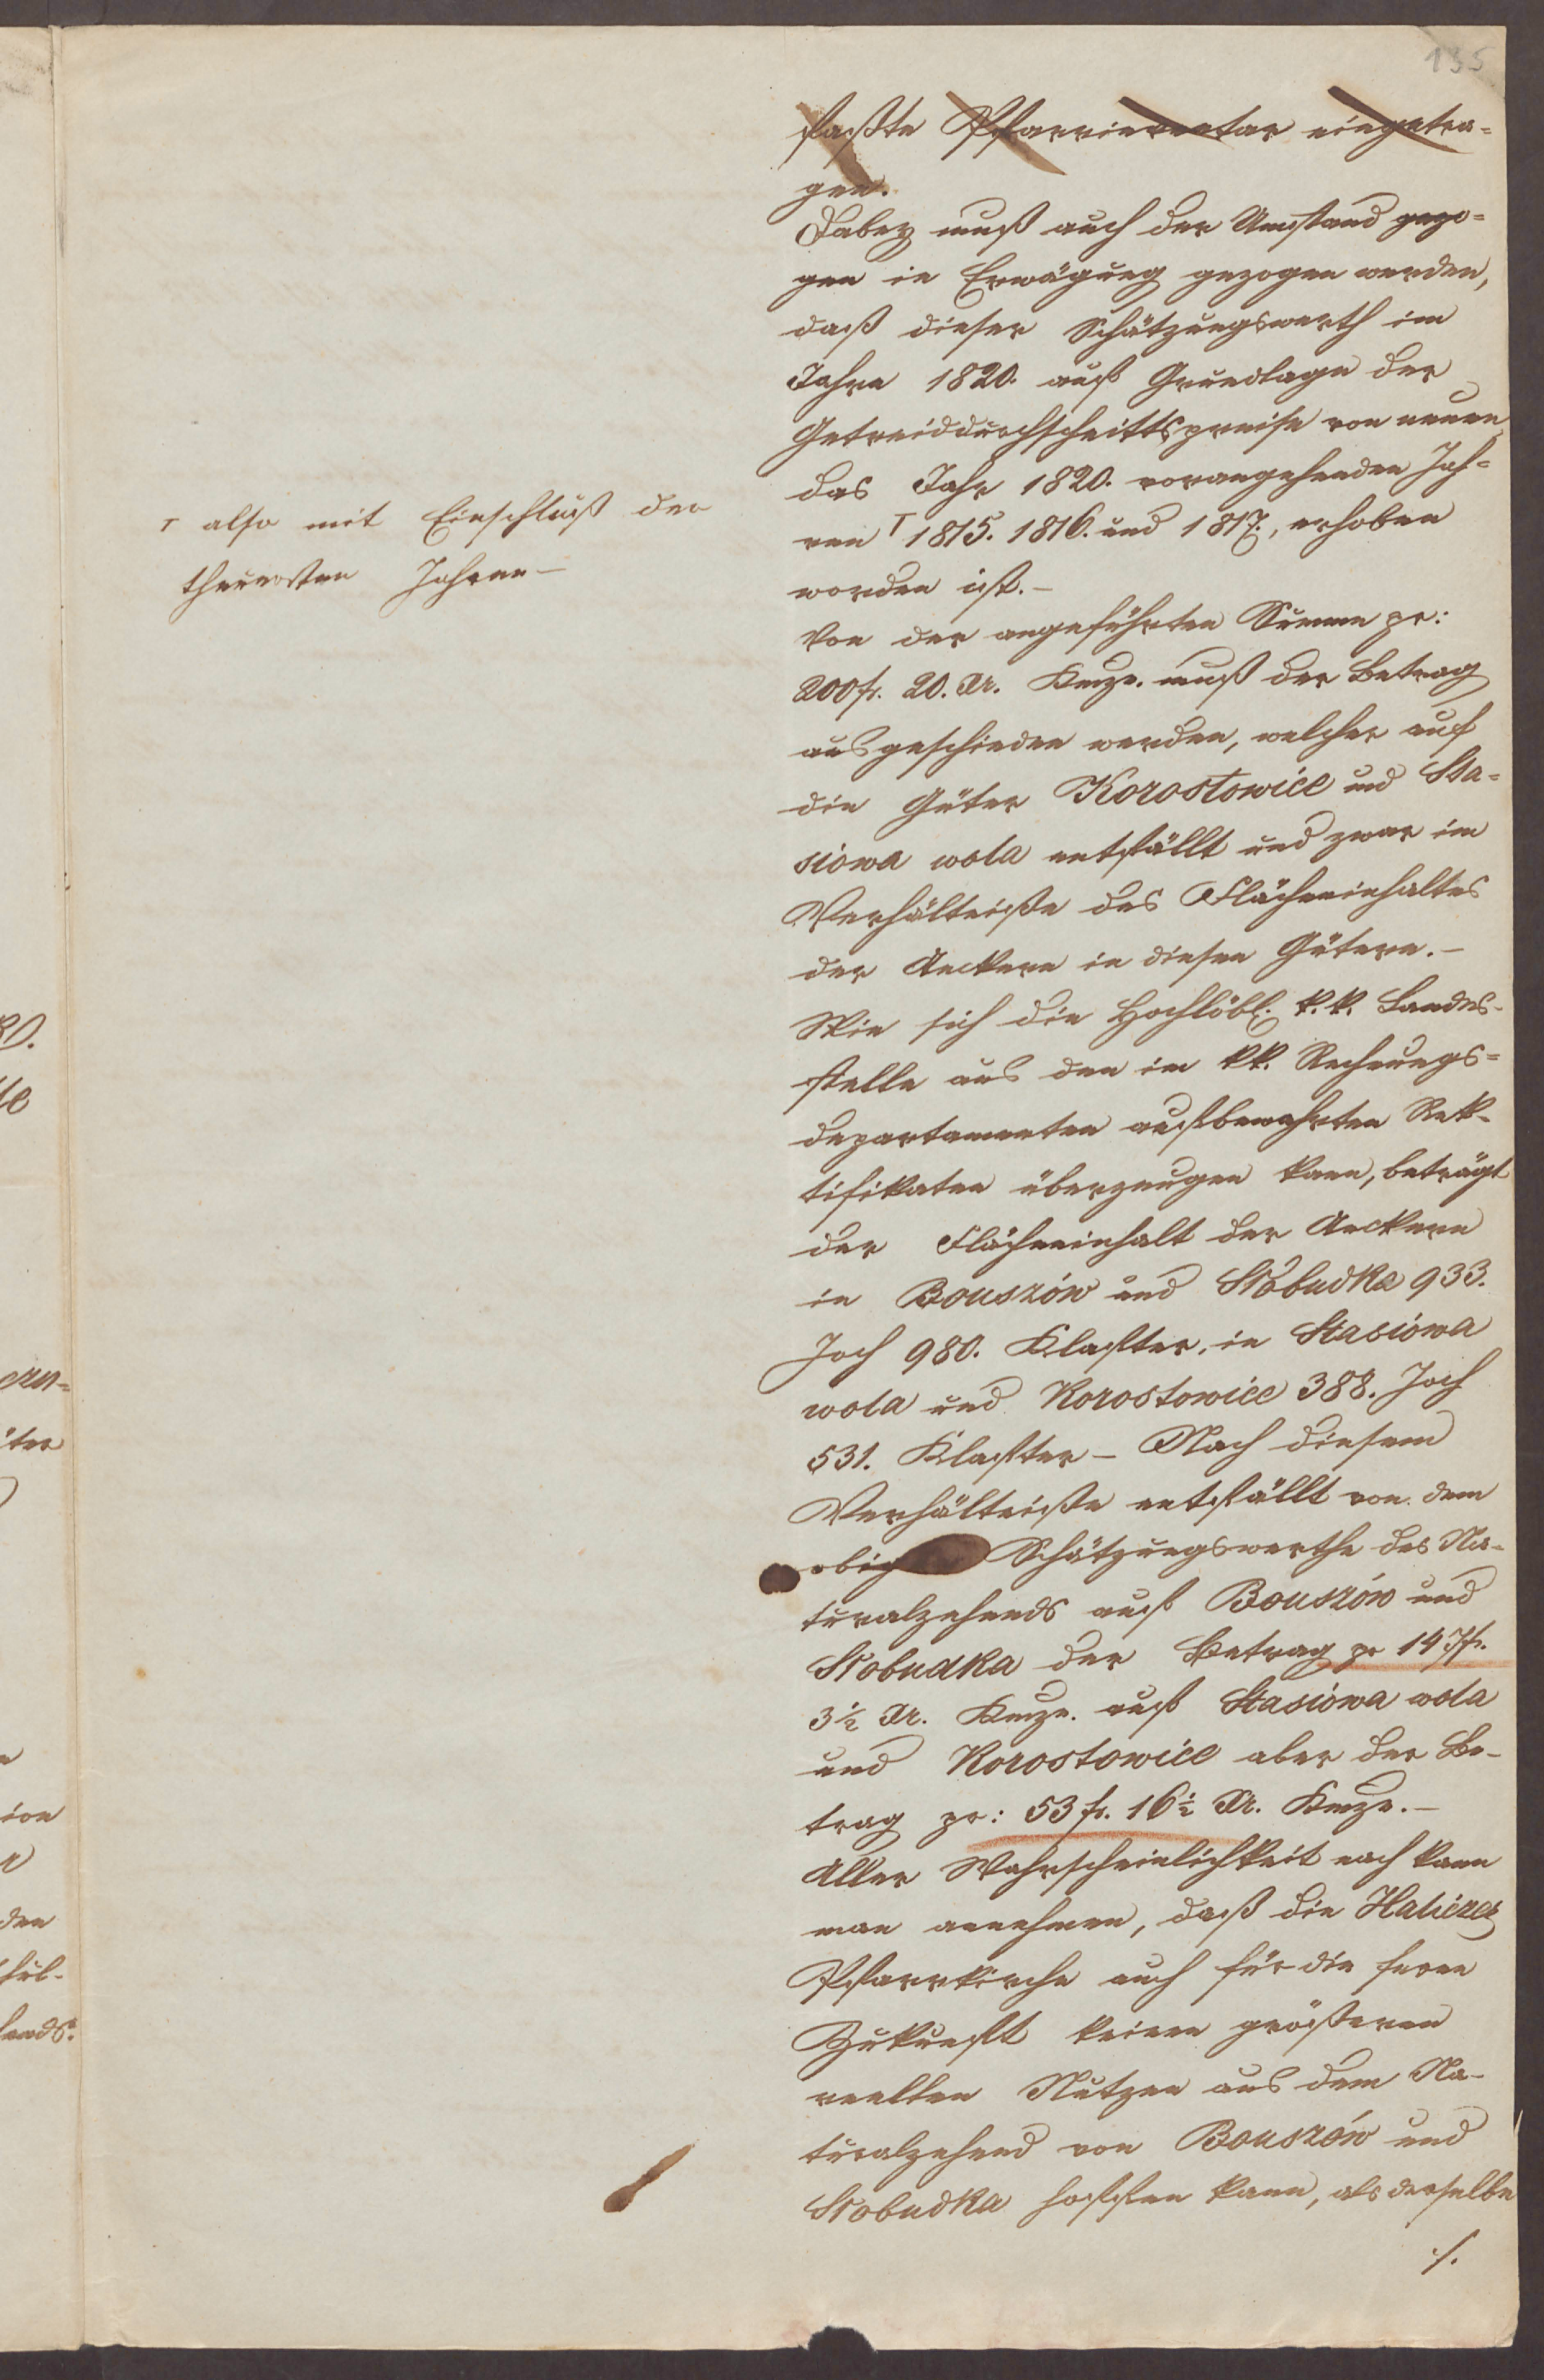 135
faßte Pfarrinventar eingetra-
gen.
Dabey muß auch der Umstand gezo-
gen in Erwägung gezogen werden,
daß dieser Schätzungswerth im
Jahre 1820. auf Grundlage der
Getreiddurchschnittspreise von neuen
das Jahr 1820. vorangehenden Jah-
ren ⊤ 1815. 1816. und 1817., erhoben
worden ist.-
⊤ also mit Einschluß der
theuersten Jahren-
Von der angeführten Summe pr:
200 fr. 20. Xr. Kmze. muß der Betrag
ausgeschieden werden, welcher auf
die Güter Korostowice und Sta-
siowa wola entfällt und zwar im
Verhältniße des Flächeninhaltes
der Aeckern in diesen Gütern.-
Wie sich die Hochlöbl. k.k. Landes-
stelle aus den im kk. Rechnungs-
departamenten aufbewahrten Rek-
tifikaten überzeugen kann, beträgt
der Flächeninhalt der Aeckern
in Bouszów und Słobudka 933.
Joch 980. Klafter, in Stasiowa
wola und Korostowice 388. Joch
531. Klafter - Nach diesem
Verhältniße entfällt von dem
obig Schätzungswerthe des Na-
turalzehends auf Bouszów und
Słobudka der Betrag pr 147 fr.
3½ Xr. Kmze. auf Stasiowa wola
und Korostowice aber der Be-
trag pr: 53 fr. 16½ Xr. Kmze.-
Aller Wahrscheinlichkeit nach kann
man annehmen, daß die Haliczer
Pfarrkirche auch für die ferne
Zukunft keinen größeren
reellen Nutzen aus dem Na-
turalzehend von Bouszów und
Słobudka hoffen kann, als derselbe
./.